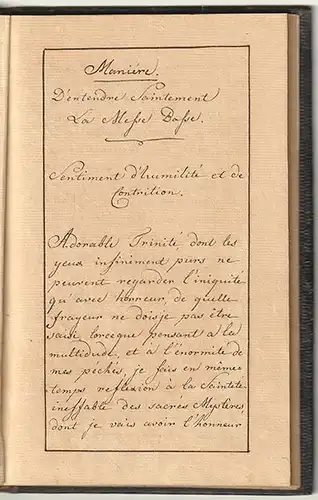 Maniére.
D'entendre Saintement
La Messe Basse.
Sentiment d'humilité et de
Contrition.
Adorable Trinité, dont les
yeux infiniment purs ne
peuvent regarder l'iniquité
qu'avec horreur, de quelle
frayeur ne doisje pas être
saisi, lorceque pensant a la
multidude, et à l'énormite de
mes pechés, je fais en même
temps reflexion à la Sainteté
ineffable des sacrés Mystères
dont je vais avoir l'honneur